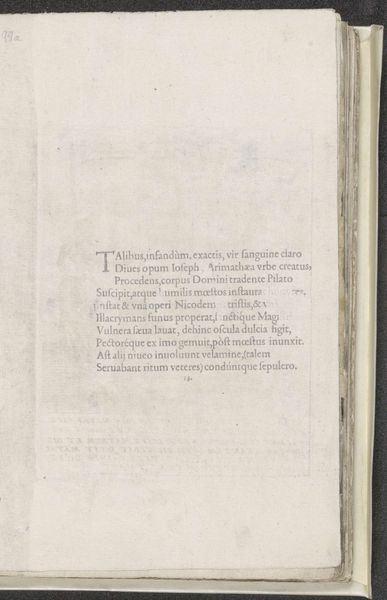 99a
TAlibus, infandùm, exactis, vir sanguine claro
Diues opum Ioseph, Arimathæa vrbe creatus,
Procedens, corpus Domini tradente Pilato
Suscipit, atque umilis mœstos instaura
instat & vnà operi Nicodem tristis, &
Illacrymans funus properat, sanctique Mag
Vulnera sæua lauat, dehinc oscula dulcia figit,
Pectoréque ex imo gemuit, pòst mœstus inunxit.
Ast alij niueo inuoluunt velamine, (talem
Seruabant ritum veteres) condúntque sepulcro.